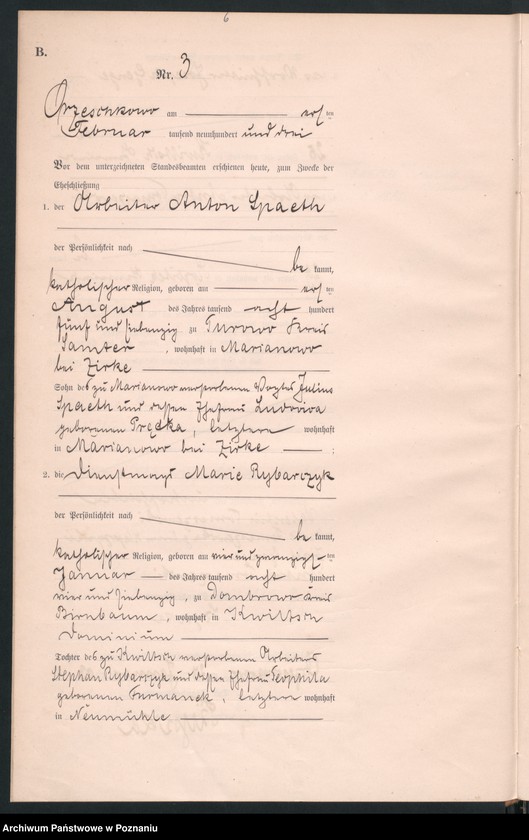 6
B.
Nr. 3
Orzeschkowo am ersten
Februar tausend neunhundert und drei
Vor dem unterzeichneten Standesbeamten erschienen heute, zum Zwecke der
Eheschließung
1. der Arbeiter Anton Spaeth
der Persönlichkeit nach
be kannt,
katholischer Religion, geboren am ersten
August des Jahres tausend acht hundert
fünf und siebenzig zu Turowo Kreis
Samter, wohnhaft in Marianowo
bei Zirke
Sohn des zu Marianowo verstorbenen Vogtes Julius
Spaeth und dessen Ehefrau Ludovica
geborenen Pręcka, letztere wohnhaft
in Marianowo bei Zirke ;
2. die Dienstmagd Marie Rybarczyk
der Persönlichkeit nach
be kannt,
katholischer Religion, geboren am vier und zwanzigsten
Januar des Jahres tausend acht hundert
vier und siebenzig, zu Dombrowo Kreis
Birnbaum, wohnhaft in Kwiltsch
Dominium
Tochter des zu Kwiltsch verstorbenen Arbeiters
Stephan Rybarczyk und dessen Ehefrau Teophila
geborenen Furmanek, letztere wohnhaft
in Neumühle
Archiwum Państwowe w Poznaniu